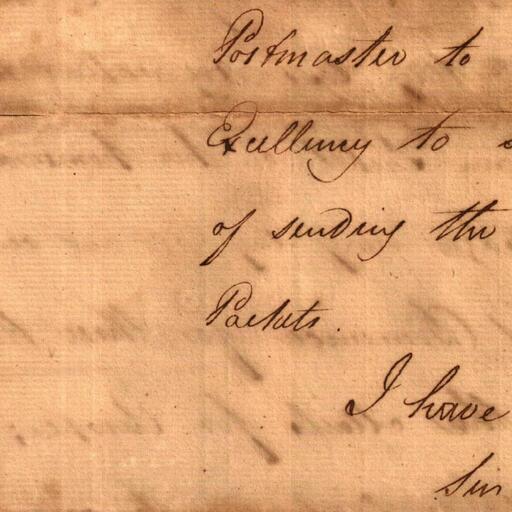 Postmaster to
Excellency to
of sending the
Packets.
I have
Sir